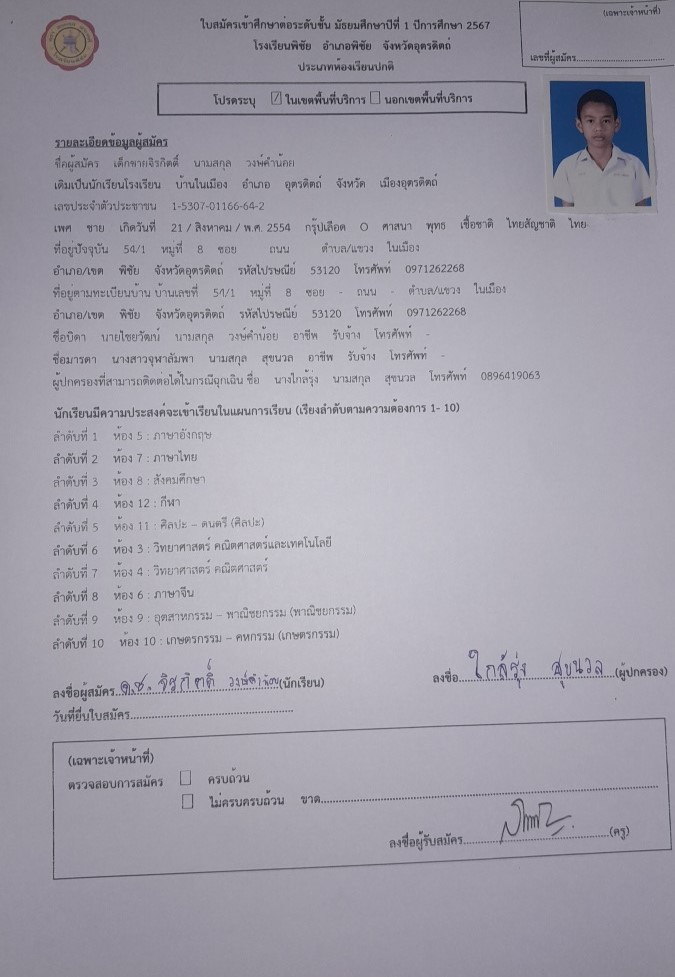 ใบสมัครเข้าศึกษาต่อระดับชั้น มัธยมศึกษาปีที่ 1 ปีการศึกษา 2567
(เฉพาะเจ้าหน้าที่)
โรงเรียนพิชัย อำเภอพิชัย จังหวัดอุตรดิตถ์
ประเภทห้องเรียนปกติ
เลขที่ผู้สมัคร
โปรดระบุ ☑ ในเขตพื้นที่บริการ ☐ นอกเขตพื้นที่บริการ
รายละเอียดข้อมูลผู้สมัคร
ชื่อผู้สมัคร เด็กชายจิรกิตติ์ นามสกุล วงษ์คำน้อย
เดิมเป็นนักเรียนโรงเรียน บ้านในเมือง อำเภอ อุตรดิตถ์ จังหวัด เมืองอุตรดิตถ์
เลขประจำตัวประชาชน 1-5307-01166-64-2
เพศ ชาย เกิดวันที่ 21 / สิงหาคม / พ.ศ. 2554 กรุ๊ปเลือด O ศาสนา พุทธ เชื้อชาติ ไทยสัญชาติ ไทย
ที่อยู่ปัจจุบัน 54/1 หมู่ที่ 8 ซอย ถนน ตำบล/แขวง ในเมือง
อำเภอ/เขต พิชัย จังหวัดอุตรดิตถ์ รหัสไปรษณีย์ 53120 โทรศัพท์ 0971262268
ที่อยู่ตามทะเบียนบ้าน บ้านเลขที่ 54/1 หมู่ที่ 8 ซอย - ถนน - ตำบล/แขวง ในเมือง
อำเภอ/เขต พิชัย จังหวัดอุตรดิตถ์ รหัสไปรษณีย์ 53120 โทรศัพท์ 0971262268
ชื่อบิดา นายไชยวัฒน์ นามสกุล วงษ์คำน้อย อาชีพ รับจ้าง โทรศัพท์ -
ชื่อมารดา นางสาวจุฬาลัมพา นามสกุล สุขนวล อาชีพ รับจ้าง โทรศัพท์ -
ผู้ปกครองที่สามารถติดต่อได้ในกรณีฉุกเฉิน ชื่อ นางใกล้รุ่ง นามสกุล สุขนวล โทรศัพท์ 0896419063
นักเรียนมีความประสงค์จะเข้าเรียนในแผนการเรียน (เรียงลำดับตามความต้องการ 1- 10)
ลำดับที่ 1 ห้อง 5 : ภาษาอังกฤษ
ลำดับที่ 2 ห้อง 7 : ภาษาไทย
ลำดับที่ 3 ห้อง 8 : สังคมศึกษา
ลำดับที่ 4 ห้อง 12 : กีฬา
ลำดับที่ 5 ห้อง 11 : ศิลปะ – ดนตรี (ศิลปะ)
ลำดับที่ 6 ห้อง 3 : วิทยาศาสตร์ คณิตศาสตร์และเทคโนโลยี
ลำดับที่ 7 ห้อง 4 : วิทยาศาสตร์ คณิตศาสตร์
ลำดับที่ 8 ห้อง 6 : ภาษาจีน
ลำดับที่ 9 ห้อง 9 : อุตสาหกรรม – พาณิชยกรรม (พาณิชยกรรม)
ลำดับที่ 10 ห้อง 10 : เกษตรกรรม – คหกรรม (เกษตรกรรม)
ลงชื่อผู้สมัคร ด.ช. จิรกิตติ์ วงษ์คำน้อย (นักเรียน) ลงชื่อ ใกล้รุ่ง สุขนวล (ผู้ปกครอง)
วันที่ยื่นใบสมัคร
(เฉพาะเจ้าหน้าที่)
ตรวจสอบการสมัคร ☐ ครบถ้วน
☐ ไม่ครบครบถ้วน ขาด
ลงชื่อผู้รับสมัคร (ครู)